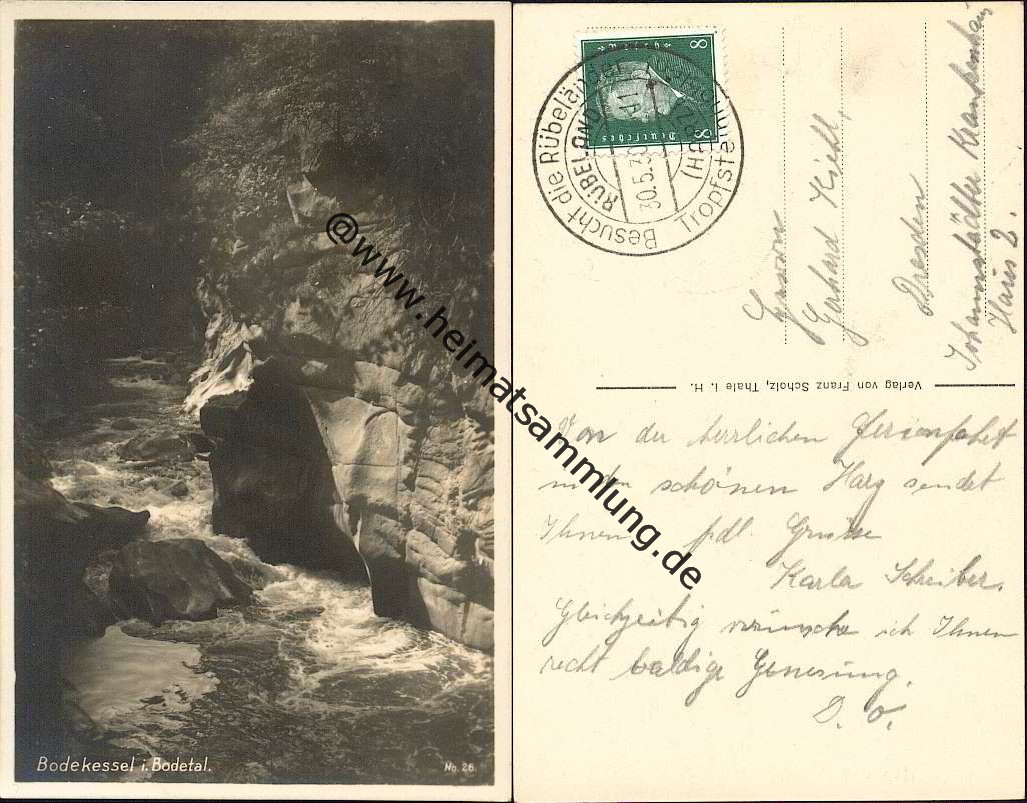 Bodekessel i. Bodetal.
No. 26.
@www.heimatsammlung.de
8 8
Deutsches
Besucht die Rübeländer Tropfstein
RÜBELAND
(HARZ)
30.5.30
Herrn
Gerhard Kiehl,
Dresden
Johannstädter Krankenhaus
Haus 2.
Verlag von Franz Scholz, Thale i. H.
Von der herrlichen Ferienfahrt
in den schönen Harz sendet
Ihnen frdl. Grüsse
Karla Scheiber.
Gleichzeitig wünsche ich Ihnen
recht baldige Genesung.
D. O.